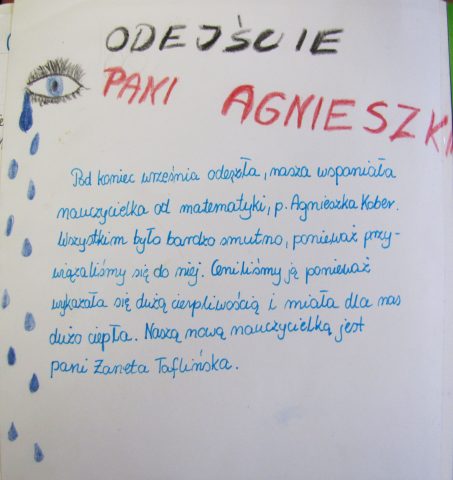 ODEJŚCIE
PANI AGNIESZKI
Pod koniec września odeszła, nasza wspaniała
nauczycielka od matematyki, p. Agnieszka Kober.
Wszystkim było bardzo smutno, ponieważ przy-
wiązaliśmy się do niej. Ceniliśmy ją ponieważ
wykazała się dużą cierpliwością i miała dla nas
dużo ciepła. Naszą nową nauczycielką jest
pani Żaneta Taflińska.